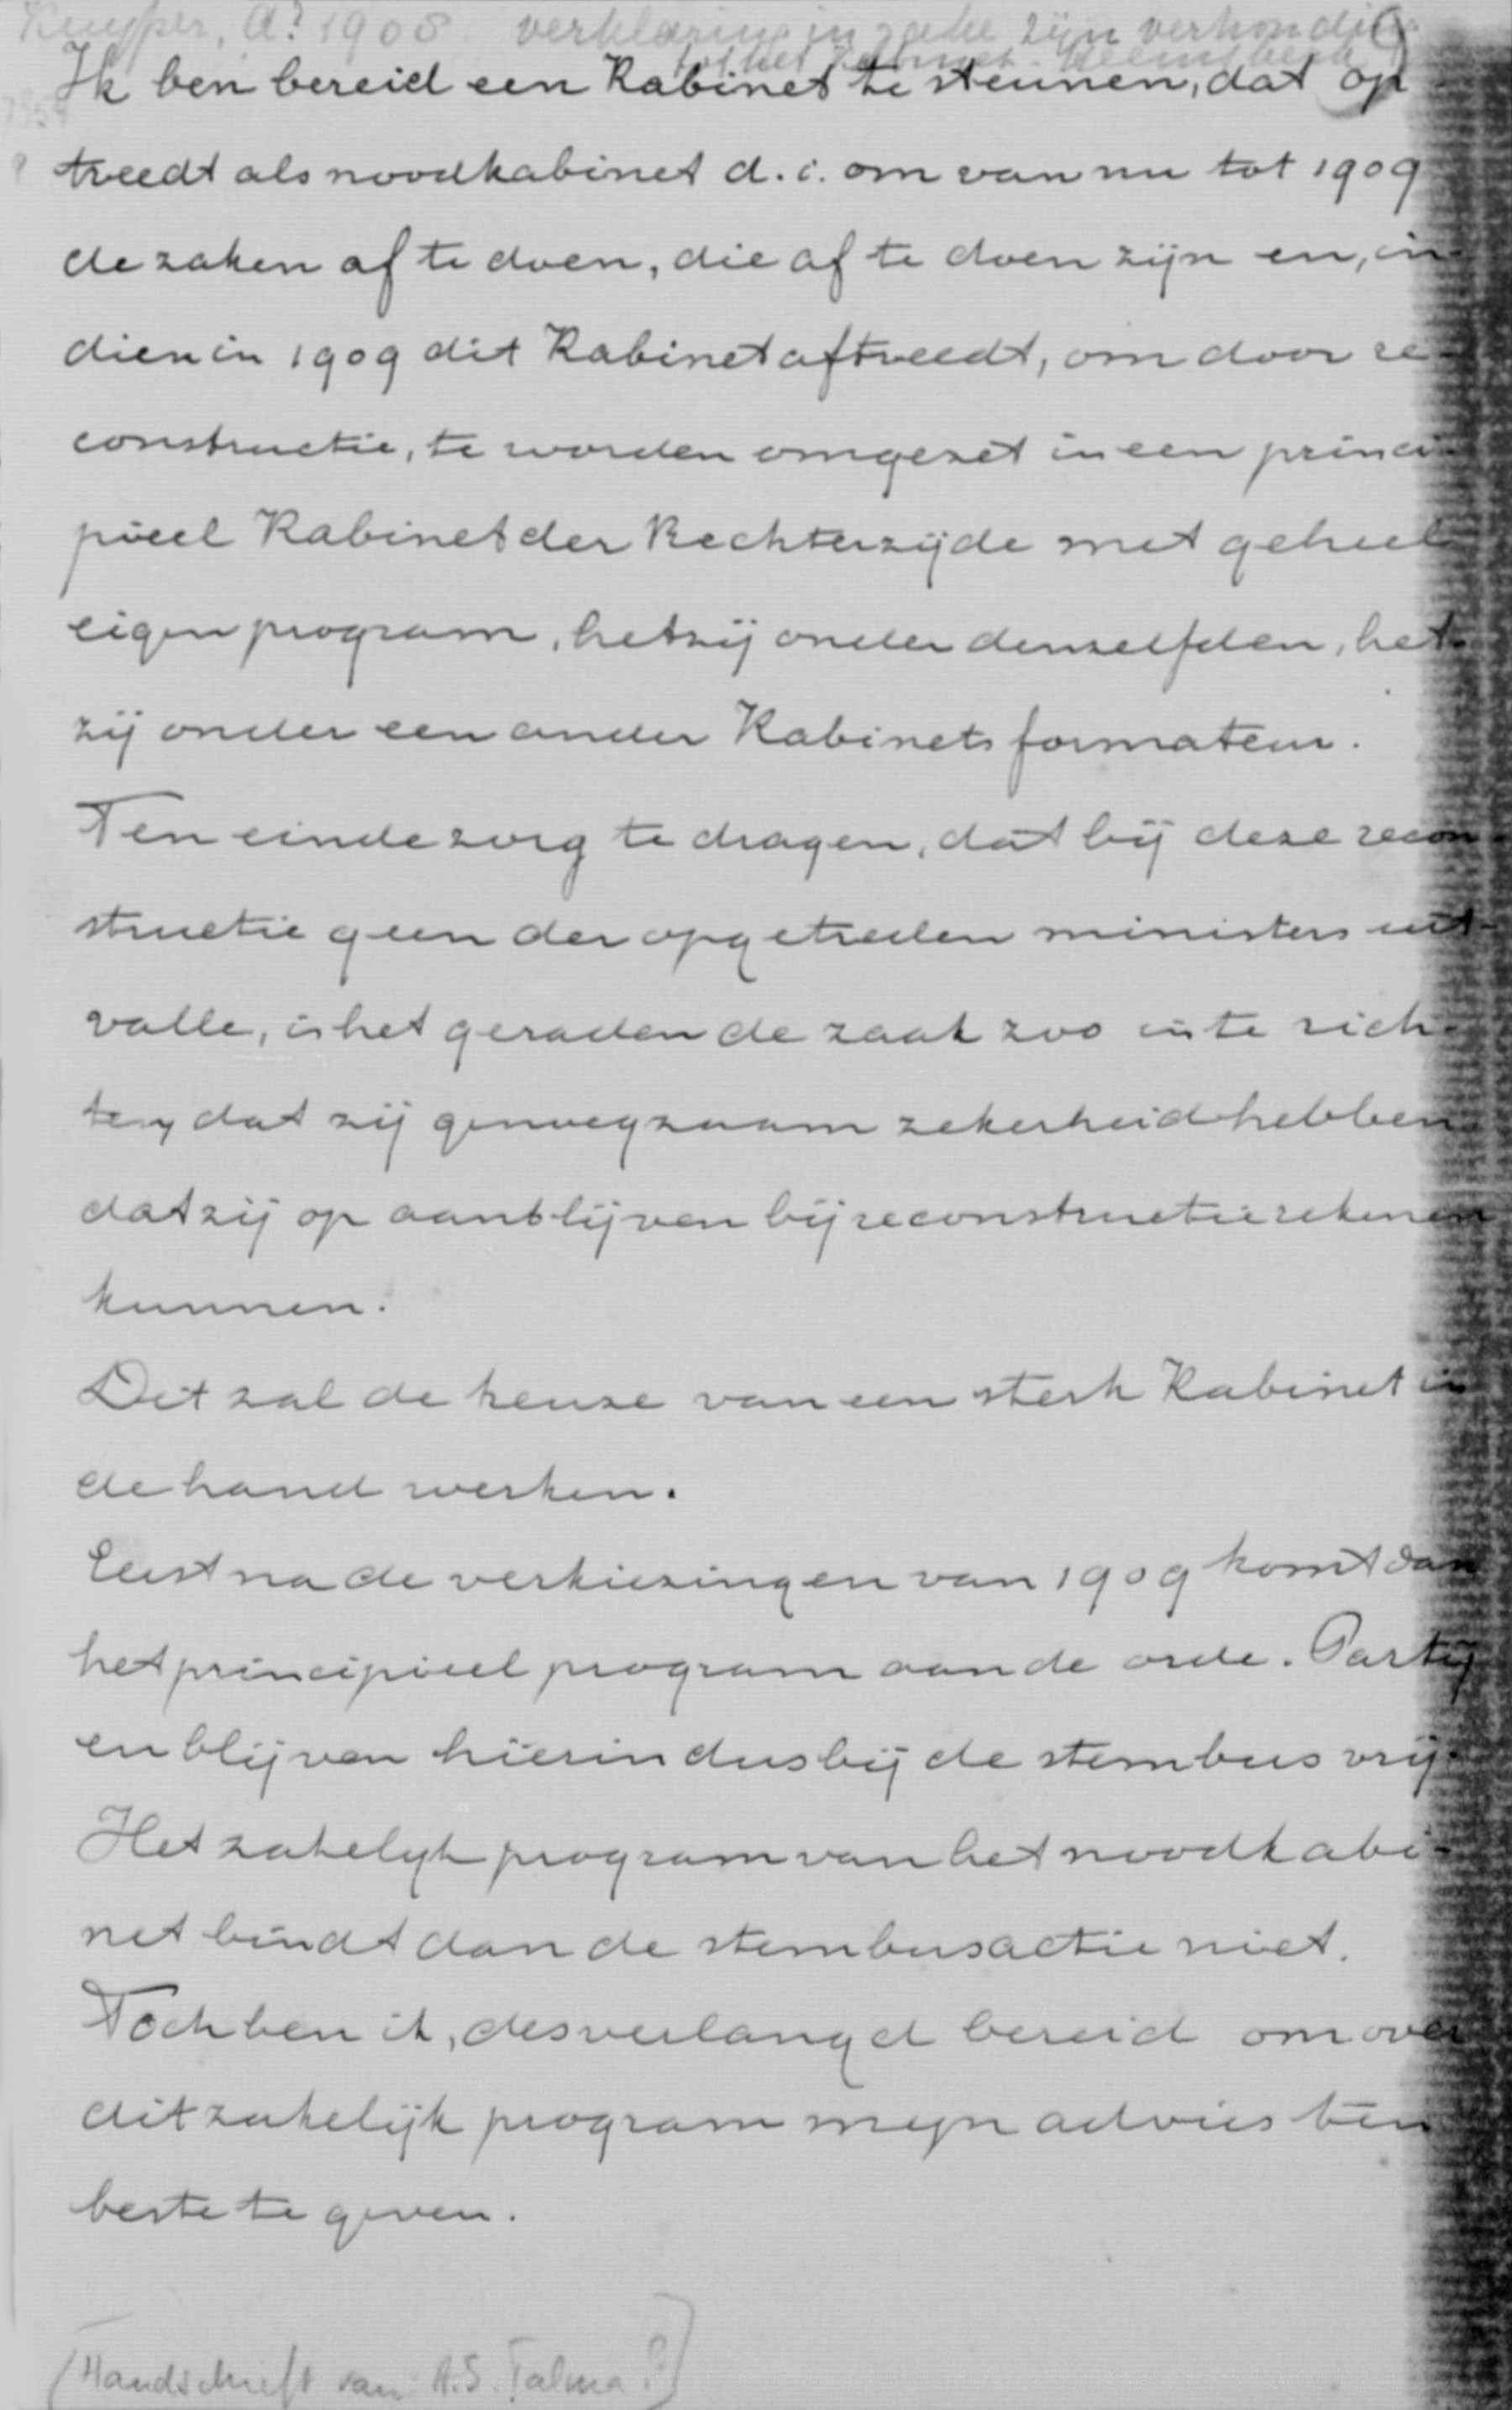 Kuyper, Ao 1908 verklaring in zake zijn verhouding
tot het Kabinet-Heemskerk
Ik ben bereid een Kabinet te steunen, dat op
treedt als noodkabinet d. i. om van nu tot 1909
de zaken af te doen, die af te doen zijn en, in-
dien in 1909 dit Kabinet aftreedt, om door re-
constructie, te worden omgezet in een princi-
pieel Kabinet der Rechterzijde met geheel
eigen program, hetzij onder denzelfden, het-
zij onder een ander Kabinetsformateur.
Ten einde zorg te dragen, dat bij deze recon-
structie geen der opgetreden ministers uit-
valle, is het geraden de zaak zoo in te rich-
ten, dat zij genoegzaam zekerheid hebben
dat zij op aanblijven bij reconstructie rekenen
kunnen.
Dit zal de keuze van een sterk Kabinet in
de hand werken.
Eerst na de verkiezingen van 1909 komt dan
het principieel program aan de orde. Partij
en blijven hierin dus bij de stembus vrij.
Het zakelijk program van het noodkabi-
net bindt dan de stembusactie niet.
Toch ben ik, desverlangd bereid om over
dit zakelijk program mijn advies ten
beste te geven.
(Handschrift van A.S. Talma?)